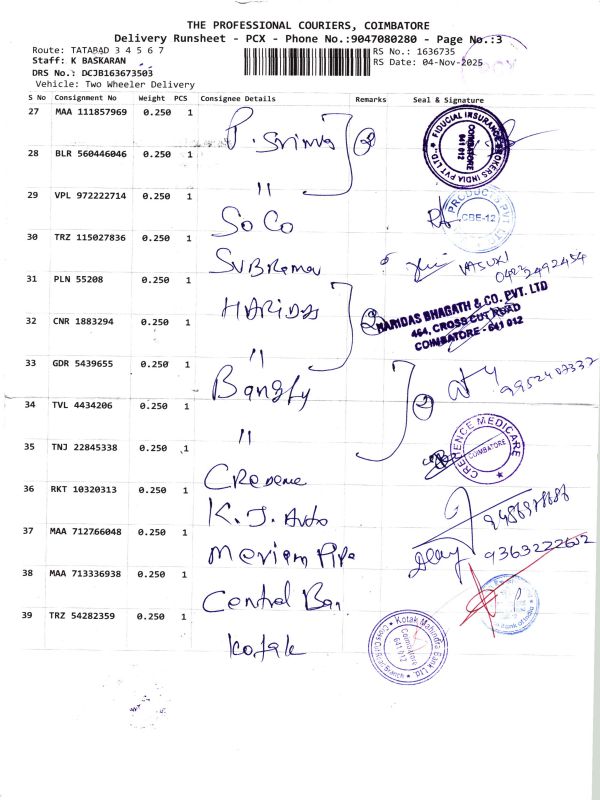 THE PROFESSIONAL COURIERS, COIMBATORE
Delivery Runsheet - PCX - Phone No.:9047080280 - Page No.:3
Route: TATABAD 3 4 5 6 7
RS No.: 1636735
Staff: K BASKARAN
RS Date: 04-Nov-2025
DRS No.: DCJB163673503
Vehicle: Two Wheeler Delivery
S No Consignment No Weight PCS Consignee Details Remarks Seal & Signature
27 MAA 111857969 0.250 1 P. Srinivas 2
FIDUCIAL INSURANCE BROKERS INDIA PVT LTD. COIMBATORE 641 012
28 BLR 560446046 0.250 1 "
29 VPL 972222714 0.250 1 SoCo
PRODUCTS PVT LTD CBE-12
30 TRZ 115027836 0.250 1 SUBRAMA
VASUKI
0422 2492454
31 PLN 55208 0.250 1 HARIDAS 2
HARIDAS BHAGATH & CO. PVT. LTD
464, CROSS CUT ROAD
COIMBATORE - 641 012
32 CNR 1883294 0.250 1 "
33 GDR 5439655 0.250 1 2
9952407337
34 TVL 4434206 0.250 1 "
35 TNJ 22845338 0.250 1 Credence
CREDENCE MEDICARE COIMBATORE
36 RKT 10320313 0.250 1 K.J. Auto
37 MAA 712766048 0.250 1 Meriam Pipe
9363222602
38 MAA 713336938 0.250 1 Central Ban
Bank of India
39 TRZ 54282359 0.250 1 Kotak
Kotak Mahindra Bank Ltd. Cross Cut Road Branch Coimbatore 641 012